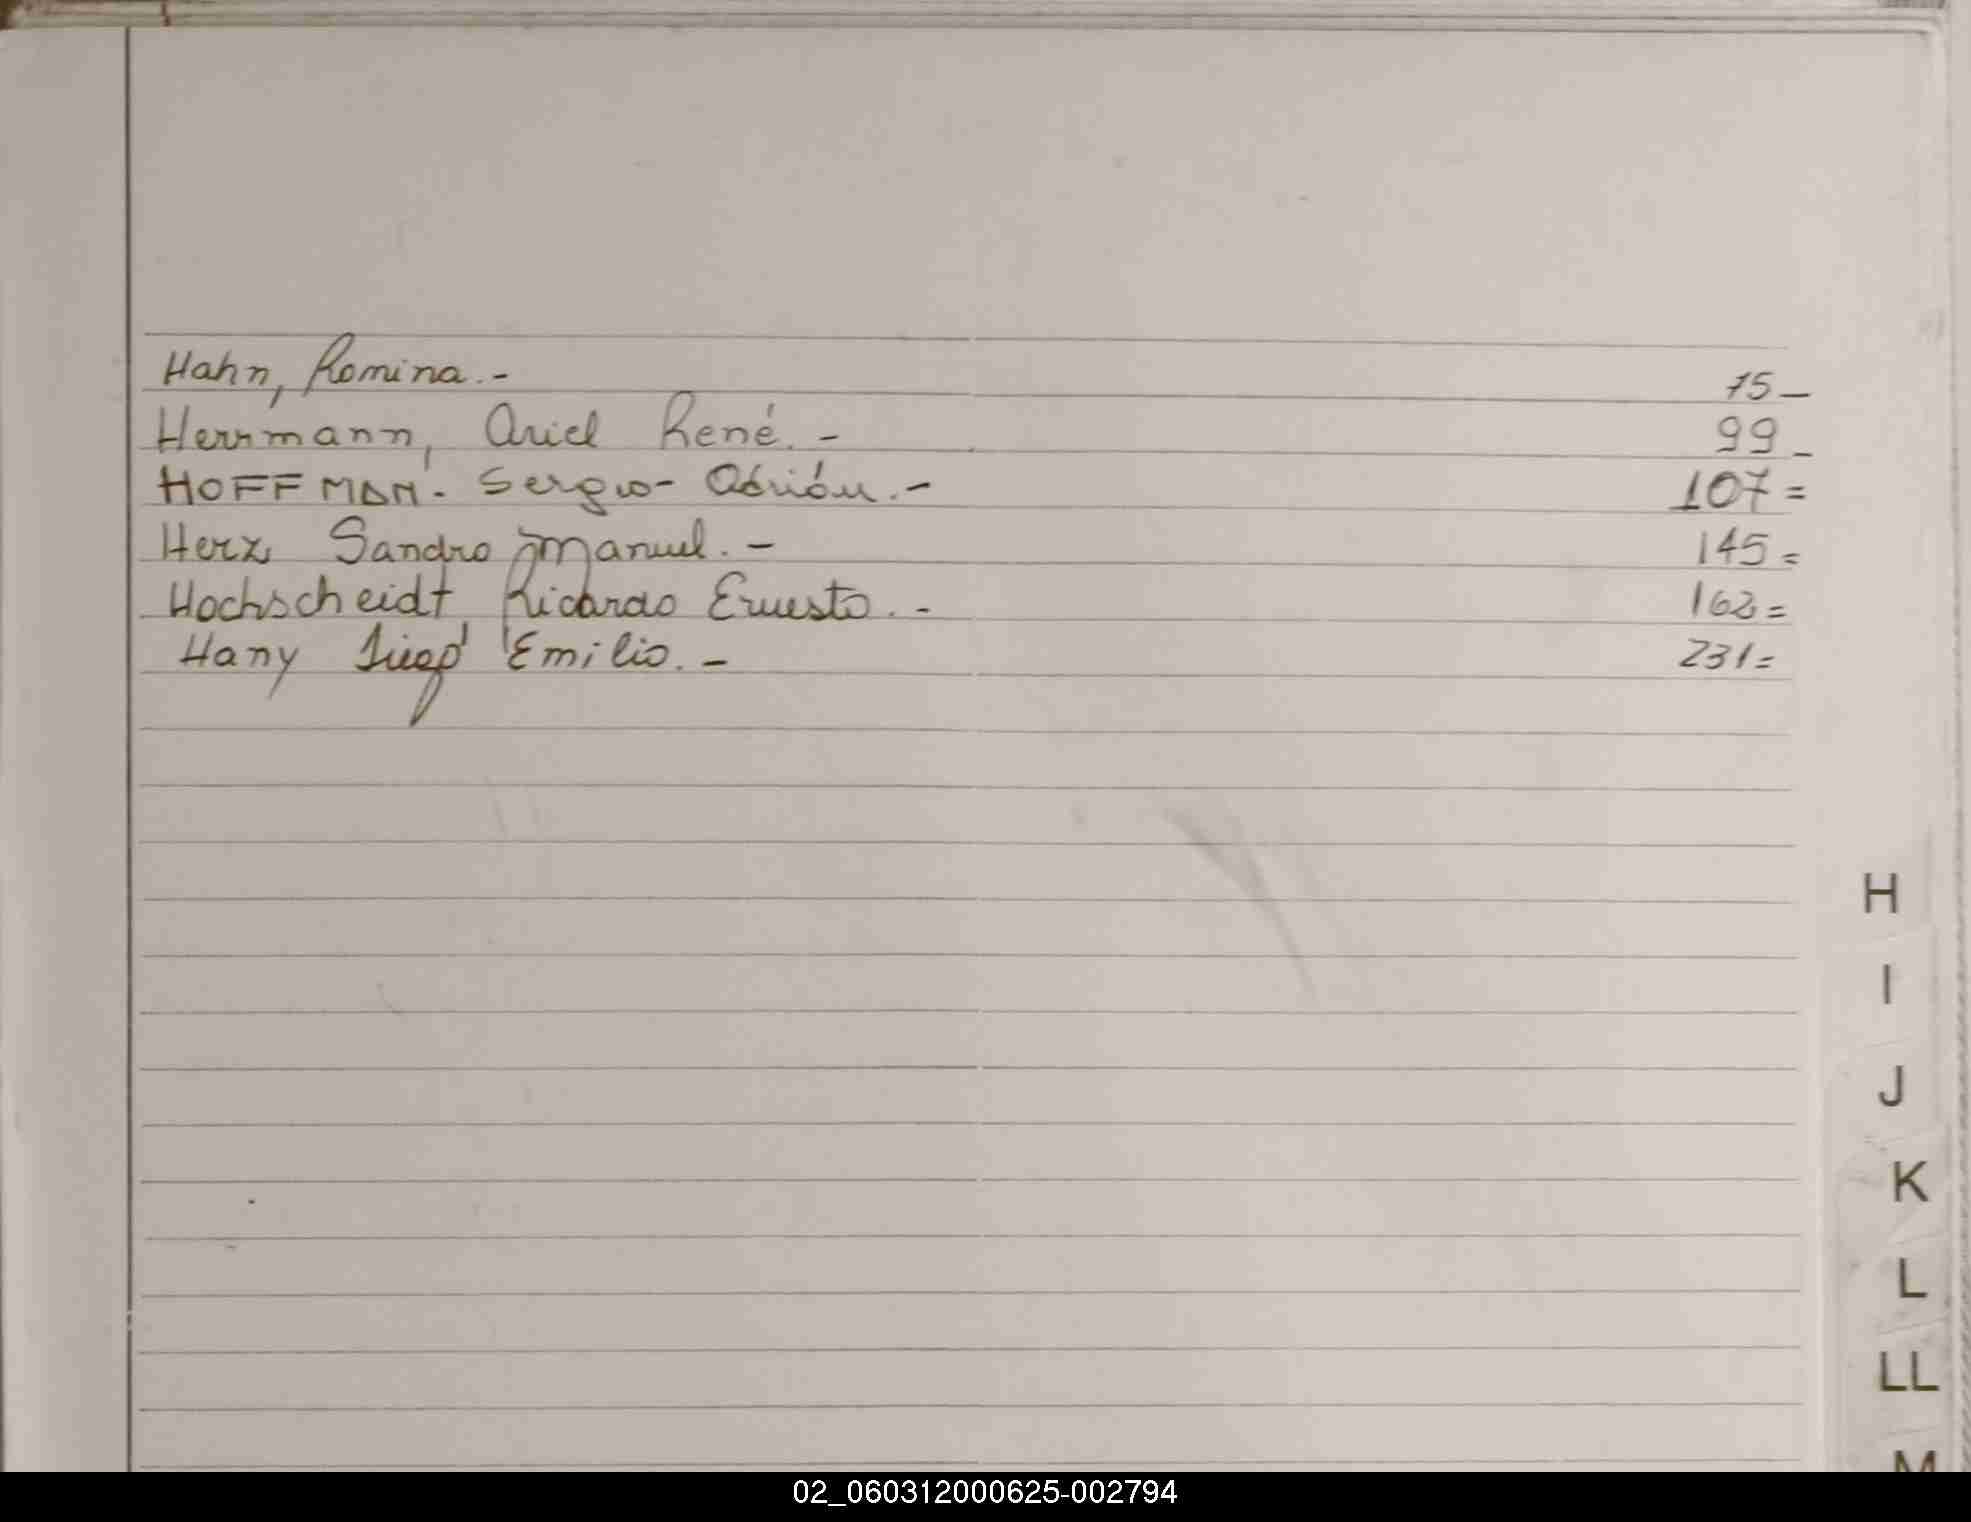 Hahn, Romina.- 75-
Herrmann, Ariel René.- 99-
HOFFMAN. Sergio- Adrián.- 107=
Herz Sandro Manuel.- 145=
Hochscheidt Ricardo Ernesto.- 162=
Hany Diego Emilio.- 231=
H
I
J
K
L
LL
M
02_060312000625-002794